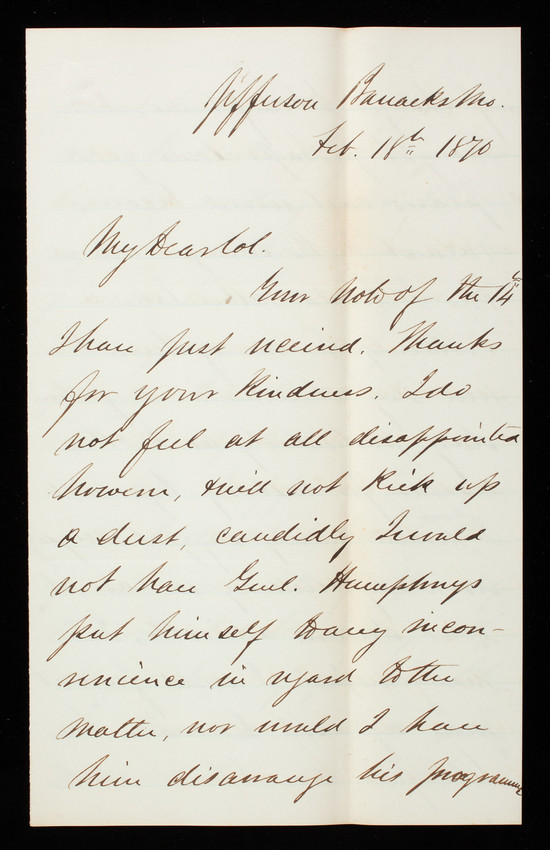 Jefferson Barracks Mo.
Feb. 18th 1870
My Dear Col.
Your Note of the 14th
I have just received. Thanks
for your kindness. I do
not feel at all disappointed
however, & will not kick up
a dust, candidly I would
not have Genl. Humphreys
put himself to any incon-
venience in regard to the
matter, nor would I have
him disarrange his programme